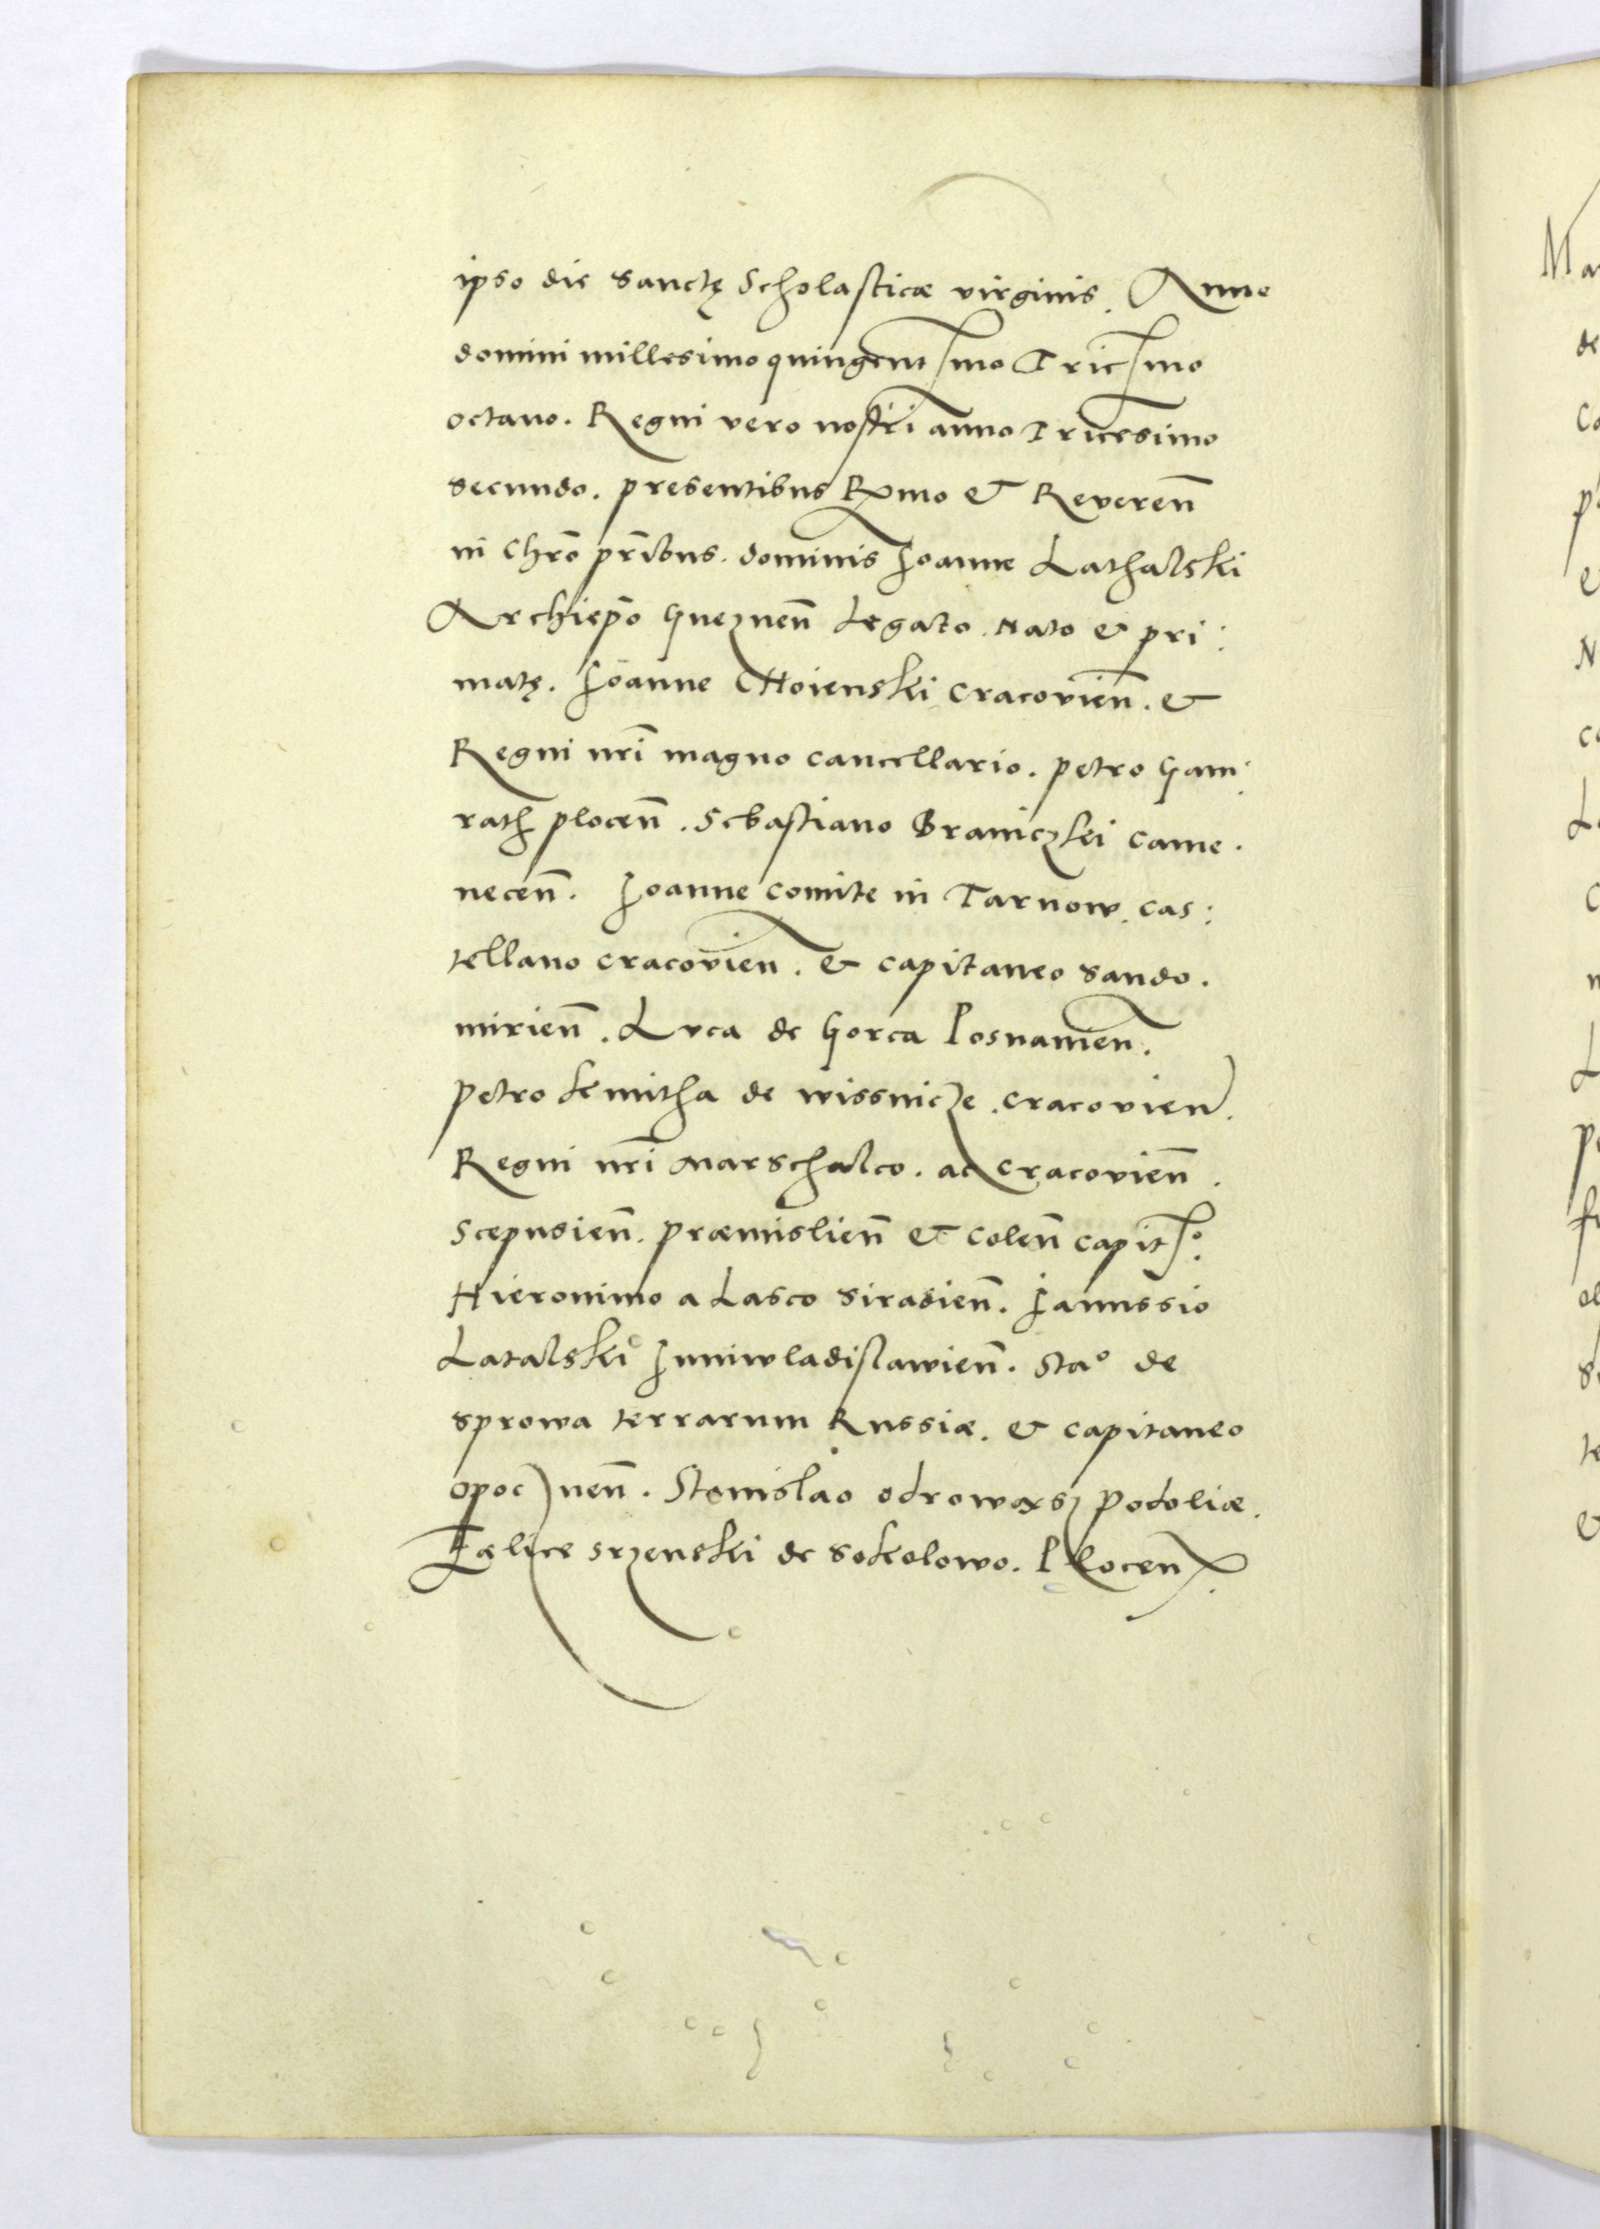 ipso die sanctę Scholasticæ virginis. Anno
domini millesimo quingentmo Tricmo
octavo. Regni vero nostri anno Tricesimo
secundo. presentibus Rmo & Reverenn
in Chro pribus. dominis Joanne Lathalski
Archiepo Gneznenn Legato. Nato & pri:
matę. Joanne Choienski Cracovienn. &
Regni nri magno cancellario. petro Gam:
rath plocenn. Sebastiano Braniczkei Came.
necenn. Joanne comite in Tarnow. cas:
tellano cracovien. & capitaneo sando.
mirienn. Luca de Gorca Posnanien.
petro kmitha de wissnicze. cracovien.
Regni nri Marschalco. ac cracovienn.
Scepusienn. præmislienn & Colenn capito.
Hieronimo a Lasco Siradienn. Janussio
Latalski Juniwladislawienn. Stao de
sprowa terrarum Russiæ. & capitaneo
opocznenn. Stanislao odrowasz podoliæ.
Fælice srzenski de sokolowo. Plocen.
Mar
de